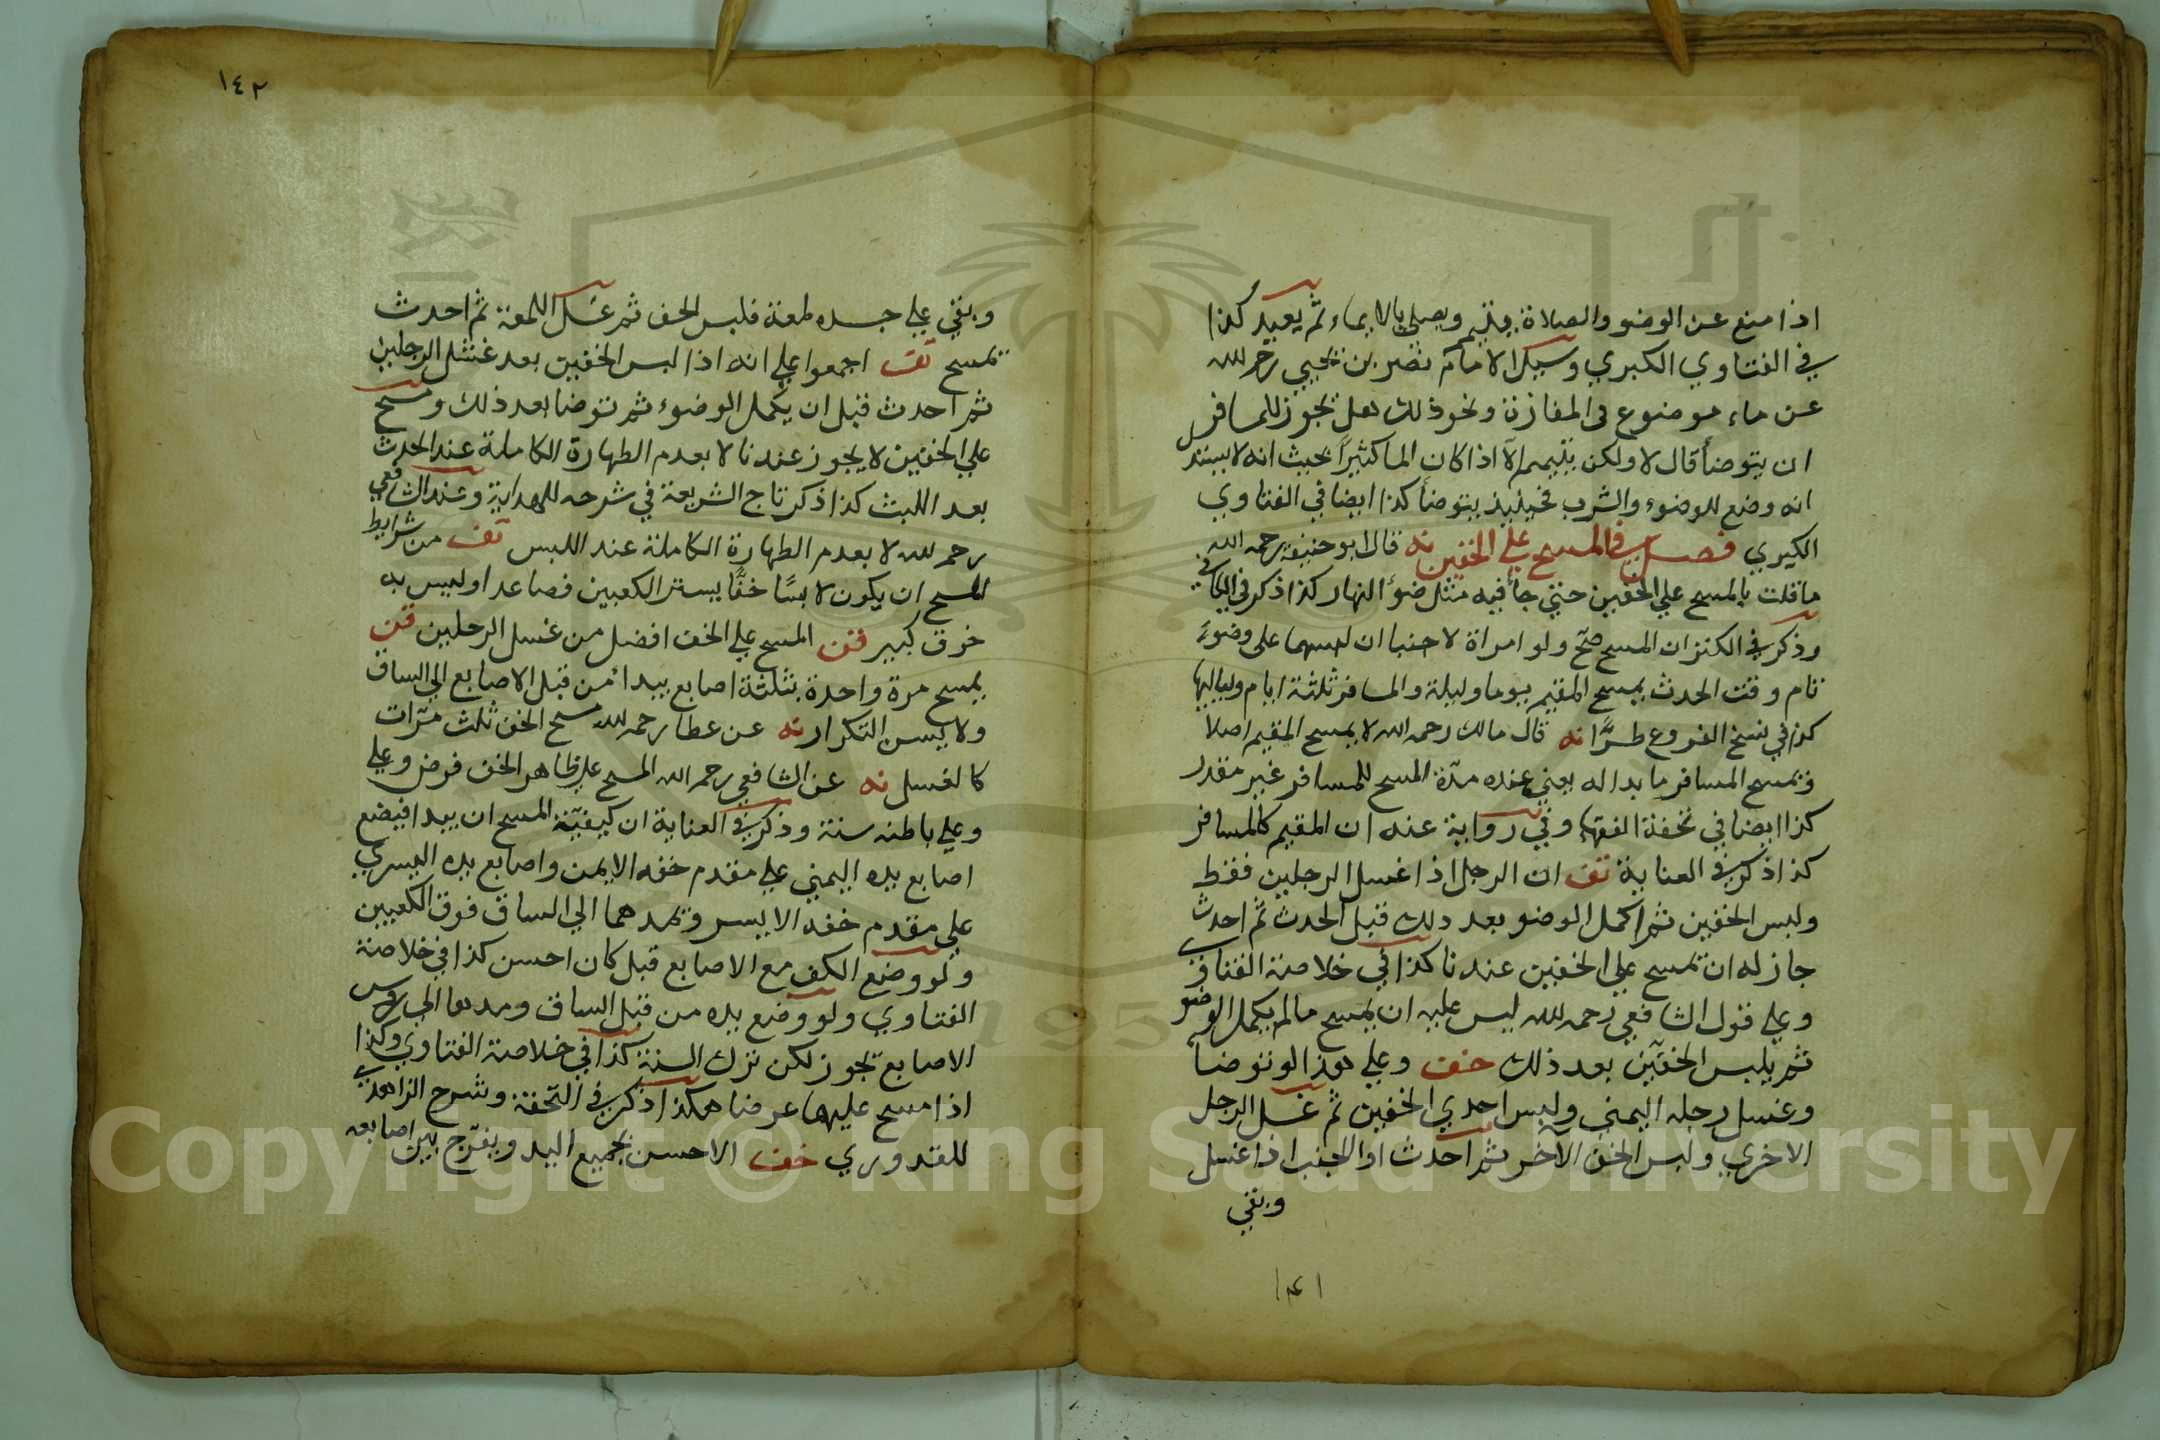 اذا منع عن الوضو والصلاة يتيمم ويصلي بالايماء ثم يعيد كذا
في الفتاوي الكبري وسيل الامام نصر بن يحيي رحمه الله
عن ماء موضوع في المفازة ونحو ذلك هل يجوز للمسافر
ان يتوضأ قال لا ولكن يتيمم الا اذا كان الما كثيرا بحيث انه لا يستدل
انه وضع للوضوء والشرب فحينيذ يتوضأ كذا ايضا في الفتاوي
الكبري فصل في المسح علي الخفين نه قال ابو حنيفة رحمه الله
ما قلت بالمسح علي الخفين حتي جأ فيه مثل ضؤ النهار كذا ذكر في الكافي
وذكر في الكنز ان المسح صح ولو امراة لا جنبا ان لبسهما على وضوء
تام وقت الحدث يمسح المقيم يوما وليلة والمسافر ثلثة ايام ولياليها
كذا في نسخ الفروع طرًا نه قال مالك رحمه الله لا يمسح المقيم اصلا
ويمسح المسافر ما بدا له يعني عنده مدّة المسح للمسافر غير مقدر
كذا ايضا في تحفة الفقهاء وفي رواية عنه ان المقيم كالمسافر
كذا ذكر في العناية تف ان الرجل اذا غسل الرجلين فقط
ولبس الخفين ثم اكمل الوضو بعد ذلك قبل الحدث ثم احدث
جاز له ان يمسح علي الخفين عندنا كذا في خلاصة الفتاوي
وعلي قول الشافعي رحمه الله ليس عليه ان يمسح ما لم يكمل الوضو
ثم يلبس الخفّين بعد ذلك خف وعلي هذا لو توضأ
وغسل رجله اليمني ولبس احدي الخفين ثم غسل الرجل
الاخري ولبس الخف الآخر ثم احدث او الجنب اذا غسل
وبقي
١٤١
١٤٢
وبقي علي جسده لمعة فلبس الخف ثم غسل اللمعة ثم احدث
يمسح تف اجمعوا علي انه اذا لبس الخفين بعد غسل الرجلين
ثم احدث قبل ان يكمل الوضوء ثم توضا بعد ذلك ومسح
علي الخفين لا يجوز عندنا لا بعدم الطهارة الكاملة عند الحدث
بعد اللبث كذا ذكر تاج الشريعة في شرحه للهداية وعند الشافعي
رحمه الله لا بعدم الطهارة الكاملة عند اللبس تف من شرايط
المسح ان يكون لابسًا خفًا يستر الكعبين فصاعدا وليس به
خرق كبير قن المسح علي الخف افضل من غسل الرجلين قن
يمسح مرة واحدة بثلثة اصابع يبدأ من قبل الاصابع الي الساق
ولا يسن التكرار نه عن عطا رحمه الله مسح الخف ثلث مرّات
كالغسل نه عن الشافعي رحمه الله المسح علي ظاهر الخف فرض وعلي
وعلي باطنه سنة وذكر في العناية ان كيفيّة المسح ان يبدا فيضع
اصابع يده اليمني علي مقدم خفه الايمن واصابع يده اليسري
علي مقدم خفه الايسر ويمدهما الي الساق فوق الكعبين
ولو وضع الكف مع الاصابع قبل كان احسن كذا في خلاصة
الفتاوي ولو وضع يده من قبل الساق ومدها الي روس
الاصابع يجوز لكن ترك السنة كذا في خلاصة الفتاوي وكذا
اذا مسح عليهما عرضا هكذا ذكر في التحفة وشرح الزاهدي
للقدوري خف الاحسن بجميع اليد ويفرّج بين اصابعه
Copyright © King Saud University